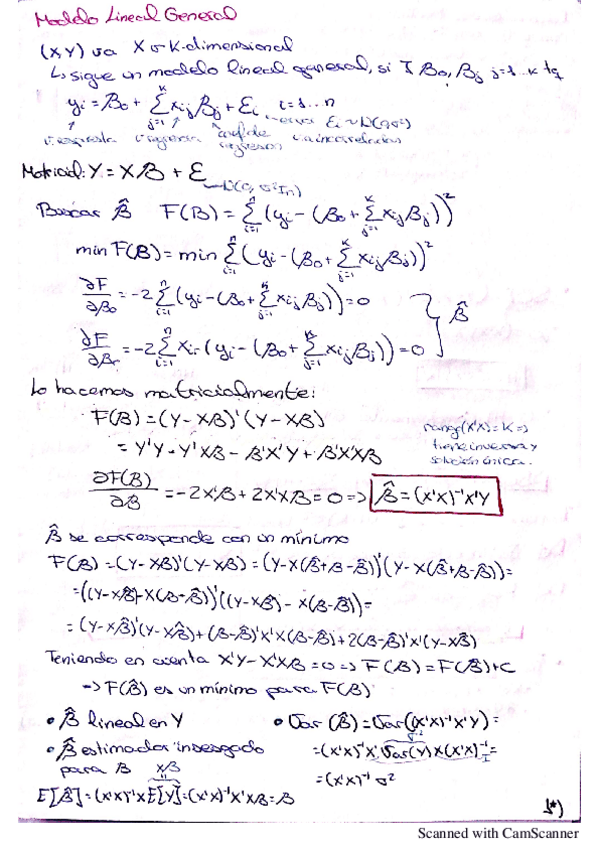 Modelo Lineal General
(X,Y) va X σ K-dimensional
↳ sigue un modelo lineal general, si ∃ β₀, βj j=1...K tq
yᵢ = β₀ + Σⱼ₌₁ᴷ xᵢⱼ βⱼ + εᵢ i=1...n
error εᵢ ~ N(0,σ²)
v. respuesta v. regresora coef. de regresión v.a. incorreladas
Matricial: Y = Xβ + ε
N(0, σ²Iₙ)
Buscar β̂ F(β) = Σᵢ₌₁ⁿ (yᵢ - (β₀ + Σⱼ₌₁ᴷ xᵢⱼ βⱼ))²
min F(β) = min Σᵢ₌₁ⁿ (yᵢ - (β₀ + Σⱼ₌₁ᴷ xᵢⱼ βⱼ))²
∂F/∂β₀ = -2 Σᵢ₌₁ⁿ (yᵢ - (β₀ + Σⱼ₌₁ᴷ xᵢⱼ βⱼ)) = 0
β̂
∂F/∂βᵣ = -2 Σᵢ₌₁ⁿ xᵢᵣ (yᵢ - (β₀ + Σⱼ₌₁ᴷ xᵢⱼ βⱼ)) = 0
Lo hacemos matricialmente:
F(β) = (Y - Xβ)'(Y - Xβ)
= Y'Y - Y'Xβ - β'X'Y + β'X'Xβ
rang(X'X) = K =>
tiene inversa y
solución única.
∂F(β)/∂β = -2X'β + 2X'Xβ = 0 => β̂ = (X'X)⁻¹X'Y
β̂ se corresponde con un mínimo
F(β) = (Y - Xβ)'(Y - Xβ) = (Y - X(β̂ + β - β̂))'(Y - X(β̂ + β - β̂)) =
= ((Y - Xβ̂) - X(β - β̂))'((Y - Xβ̂) - X(β - β̂)) =
= (Y - Xβ̂)'(Y - Xβ̂) + (β - β̂)'X'X(β - β̂) + 2(β - β̂)'X'(Y - Xβ̂)
Teniendo en cuenta X'Y - X'Xβ = 0 => F(β) = F(β̂) + C
=> F(β̂) es un mínimo para F(β)
• β̂ lineal en Y
• β̂ estimador insesgado
para β
Xβ
E[β̂] = (X'X)⁻¹X E[Y] = (X'X)⁻¹X'Xβ = β
• Var(β̂) = Var((X'X)⁻¹X'Y) =
= (X'X)⁻¹X' Var(Y) X(X'X)⁻¹ =
= (X'X)⁻¹ σ²
Scanned with CamScanner